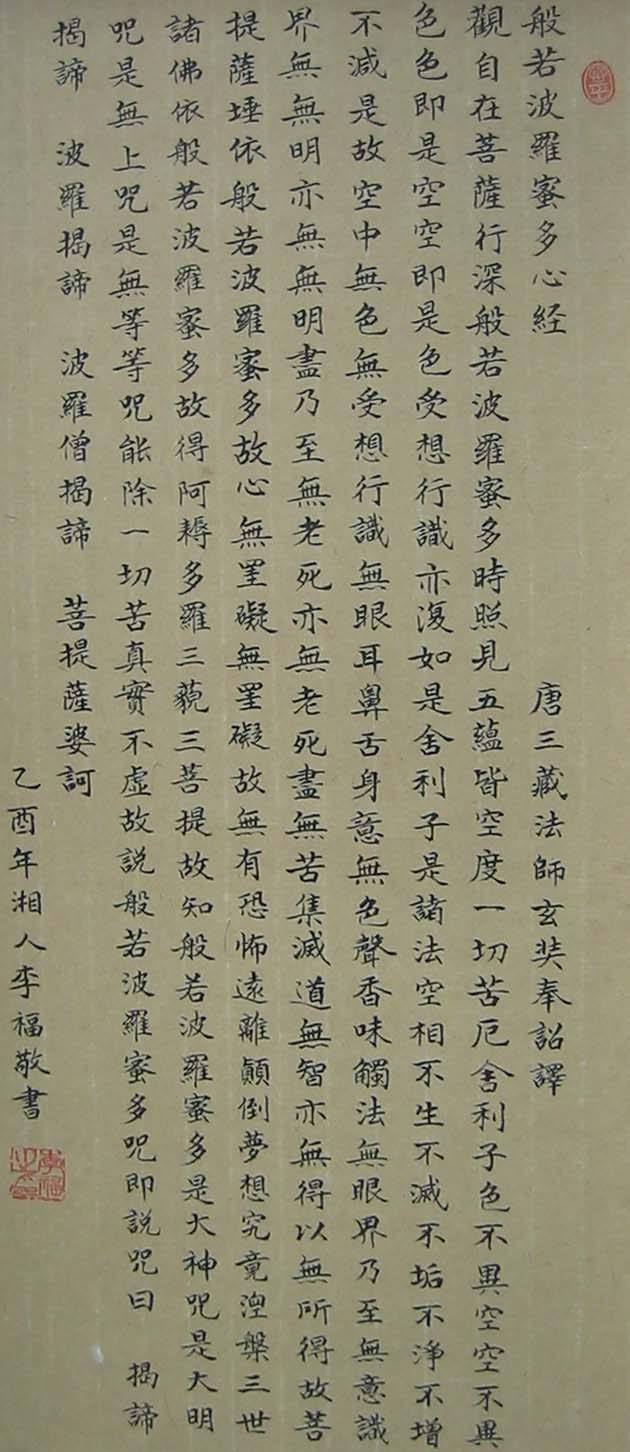 般若波羅蜜多心経 唐三藏法師玄奘奉詔譯
觀自在菩薩行深般若波羅蜜多時照見五蘊皆空度一切苦厄舍利子色不異空空不異
色色即是空空即是色受想行識亦復如是舍利子是諸法空相不生不滅不垢不淨不增
不減是故空中無色無受想行識無眼耳鼻舌身意無色聲香味觸法無眼界乃至無意識
界無無明亦無無明盡乃至無老死亦無老死盡無苦集滅道無智亦無得以無所得故菩
提薩埵依般若波羅蜜多故心無罣礙無罣礙故無有恐怖遠離顛倒夢想究竟涅槃三世
諸佛依般若波羅蜜多故得阿耨多羅三藐三菩提故知般若波羅蜜多是大神咒是大明
咒是無上咒是無等等咒能除一切苦真實不虛故説般若波羅蜜多咒即説咒曰 揭諦
揭諦 波羅揭諦 波羅僧揭諦 菩提薩婆訶
乙酉年湘人李福敬書